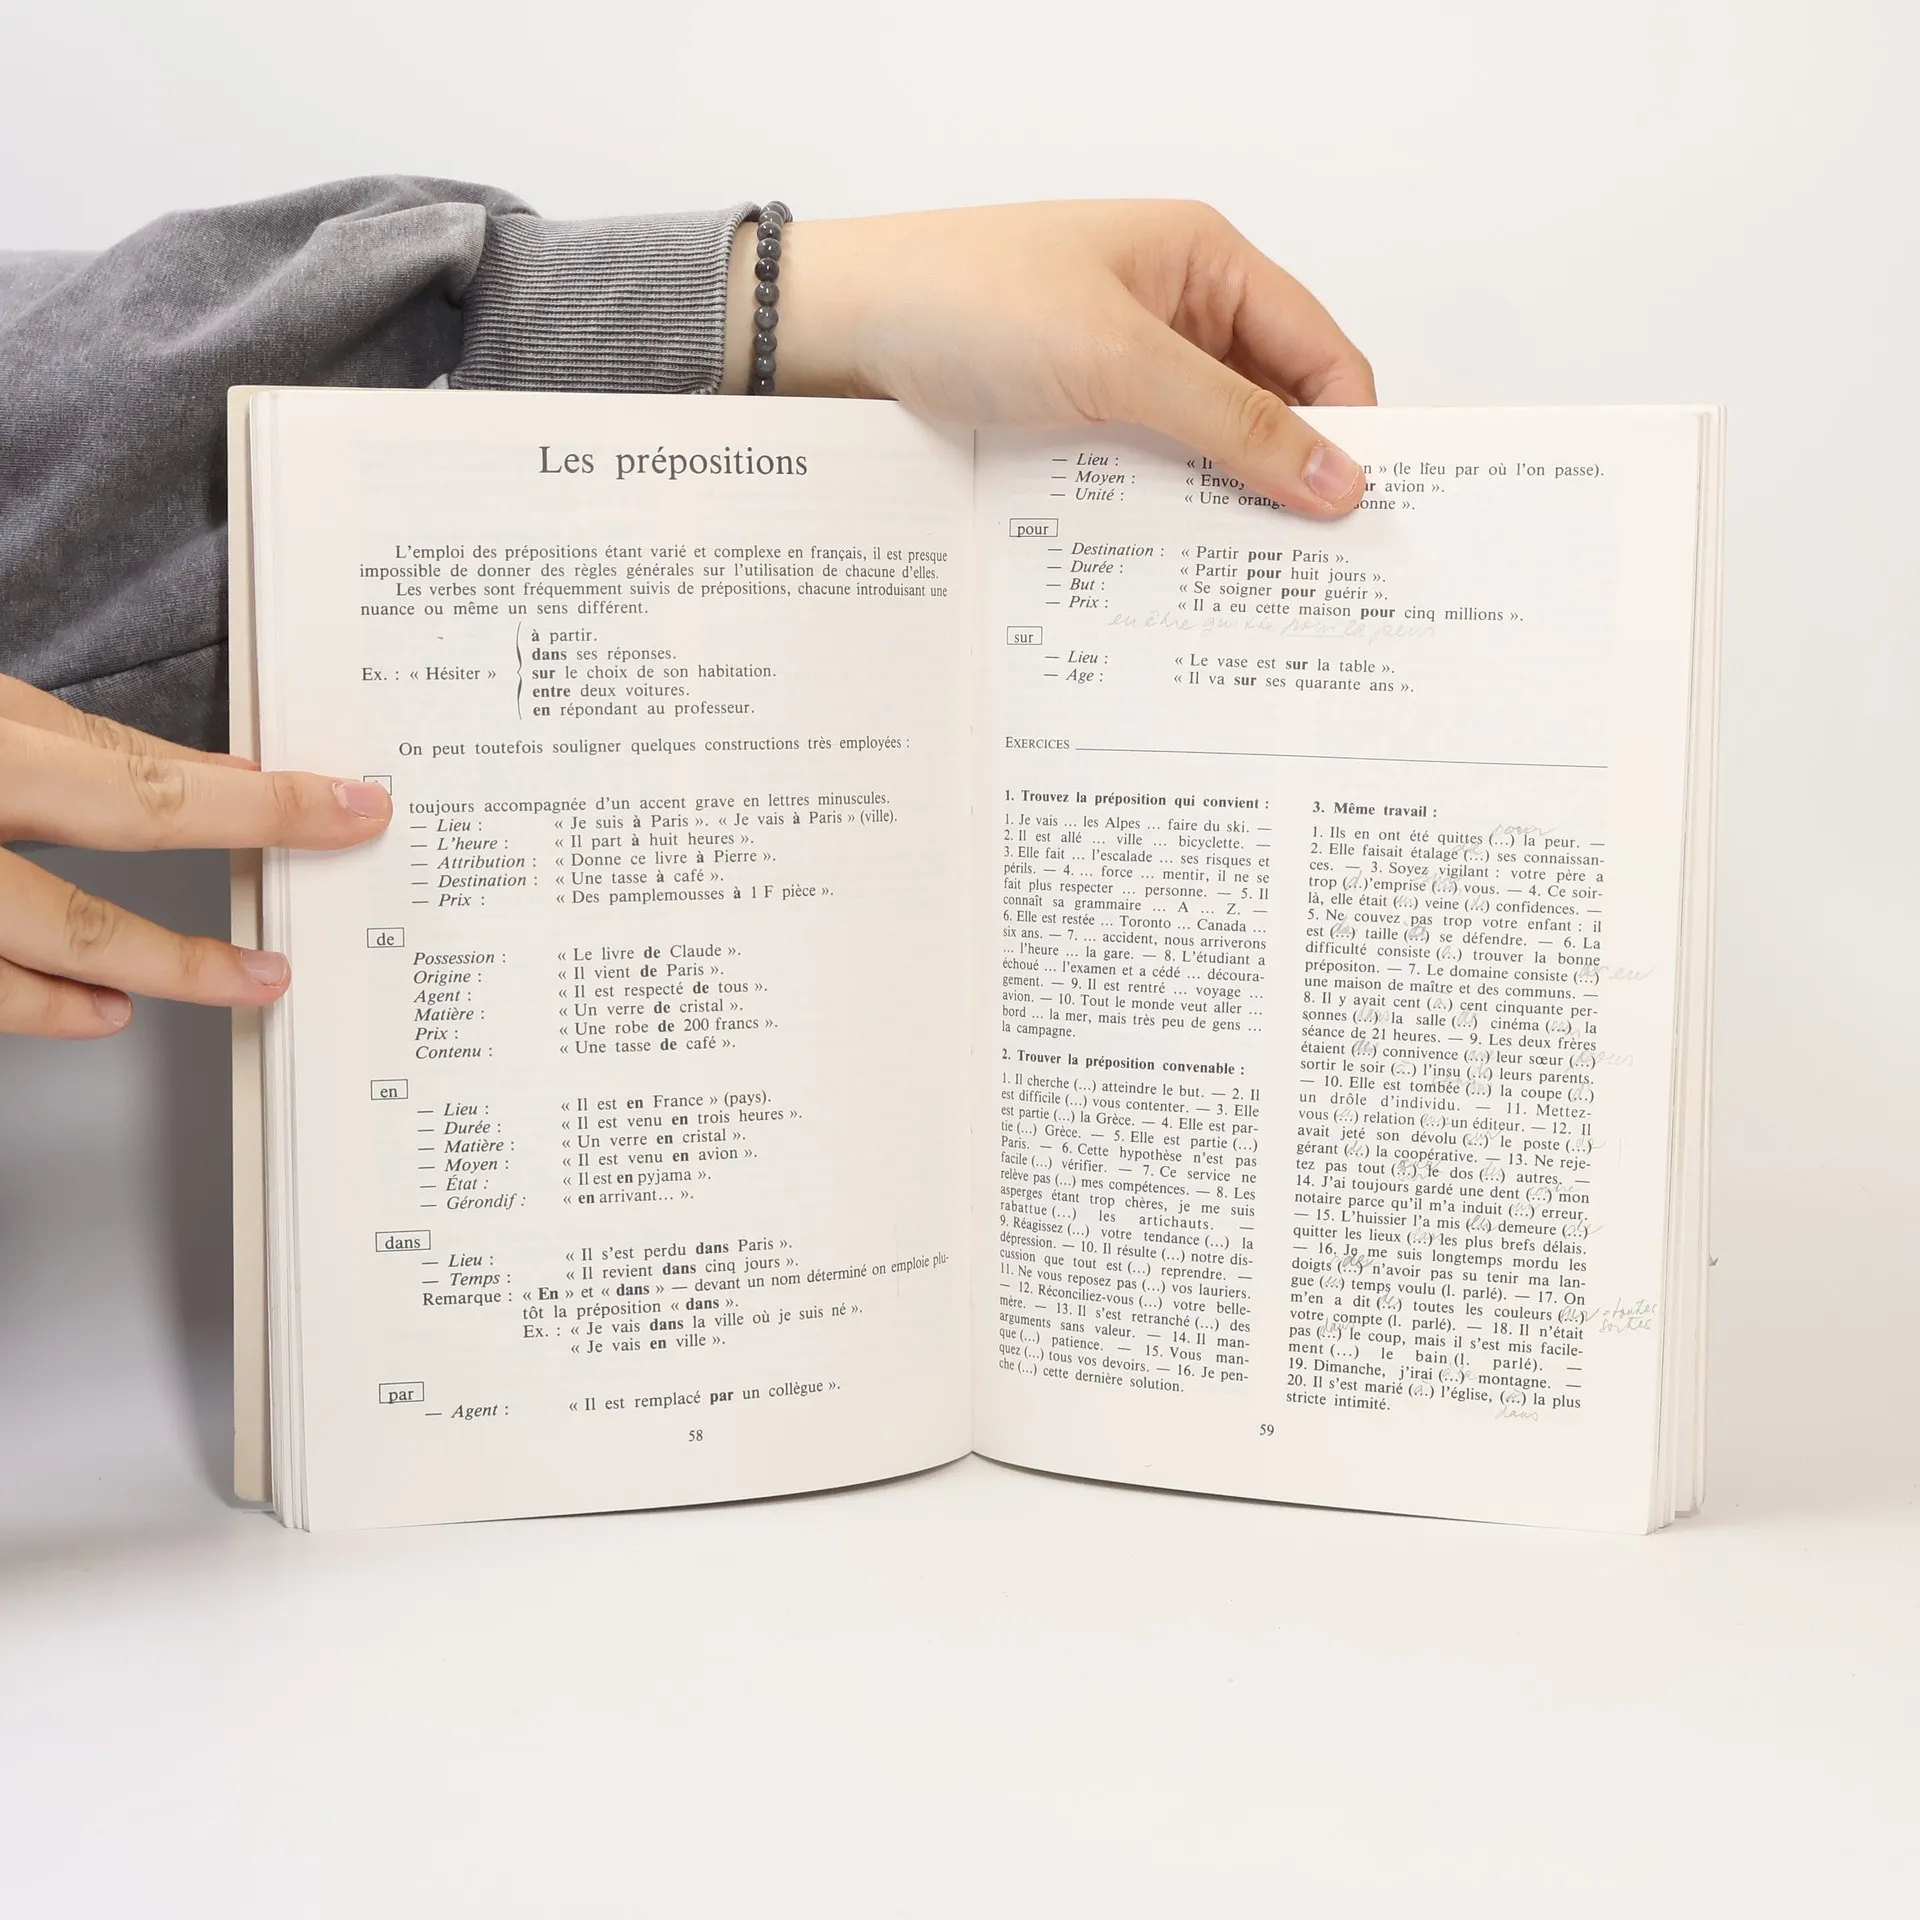 Les prépositions
L'emploi des prépositions étant varié et complexe en français, il est presque
impossible de donner des règles générales sur l'utilisation de chacune d'elles.
Les verbes sont fréquemment suivis de prépositions, chacune introduisant une
nuance ou même un sens différent.
à partir.
dans ses réponses.
Ex. : « Hésiter » sur le choix de son habitation.
entre deux voitures.
en répondant au professeur.
On peut toutefois souligner quelques constructions très employées :
toujours accompagnée d'un accent grave en lettres minuscules.
— Lieu : « Je suis à Paris ». « Je vais à Paris » (ville).
— L'heure : « Il part à huit heures ».
— Attribution : « Donne ce livre à Pierre ».
— Destination : « Une tasse à café ».
— Prix : « Des pamplemousses à 1 F pièce ».
de
Possession : « Le livre de Claude ».
Origine : « Il vient de Paris ».
Agent : « Il est respecté de tous ».
Matière : « Un verre de cristal ».
Prix : « Une robe de 200 francs ».
Contenu : « Une tasse de café ».
en
— Lieu : « Il est en France » (pays).
— Durée : « Il est venu en trois heures ».
— Matière : « Un verre en cristal ».
— Moyen : « Il est venu en avion ».
— État : « Il est en pyjama ».
— Gérondif : « en arrivant... ».
dans
— Lieu : « Il s'est perdu dans Paris ».
— Temps : « Il revient dans cinq jours ».
Remarque : « En » et « dans » — devant un nom déterminé on emploie plu-
tôt la préposition « dans ».
Ex. : « Je vais dans la ville où je suis né ».
« Je vais en ville ».
par
— Agent : « Il est remplacé par un collègue ».
58
— Lieu : « Il » (le lieu par où l'on passe).
— Moyen : « avion ».
— Unité : « Une ».
pour
— Destination : « Partir pour Paris ».
— Durée : « Partir pour huit jours ».
— But : « Se soigner pour guérir ».
— Prix : « Il a eu cette maison pour cinq millions ».
en être quitte pour la peur
sur
— Lieu : « Le vase est sur la table ».
— Age : « Il va sur ses quarante ans ».
EXERCICES
1. Trouvez la préposition qui convient :
1. Je vais ... les Alpes ... faire du ski. —
2. Il est allé ... ville ... bicyclette. —
3. Elle fait ... l'escalade ... ses risques et
périls. — 4. ... force ... mentir, il ne se
fait plus respecter ... personne. — 5. Il
connaît sa grammaire ... A ... Z. —
6. Elle est restée ... Toronto ... Canada ...
six ans. — 7. ... accident, nous arriverons
... l'heure ... la gare. — 8. L'étudiant a
échoué ... l'examen et a cédé ... découra-
gement. — 9. Il est rentré ... voyage ...
avion. — 10. Tout le monde veut aller ...
bord ... la mer, mais très peu de gens ...
la campagne.
2. Trouver la préposition convenable :
1. Il cherche (...) atteindre le but. — 2. Il
est difficile (...) vous contenter. — 3. Elle
est partie (...) la Grèce. — 4. Elle est par-
tie (...) Grèce. — 5. Elle est partie (...)
Paris. — 6. Cette hypothèse n'est pas
facile (...) vérifier. — 7. Ce service ne
relève pas (...) mes compétences. — 8. Les
asperges étant trop chères, je me suis
rabattue (...) les artichauts. —
9. Réagissez (...) votre tendance (...) la
dépression. — 10. Il résulte (...) notre dis-
cussion que tout est (...) reprendre. —
11. Ne vous reposez pas (...) vos lauriers.
— 12. Réconciliez-vous (...) votre belle-
mère. — 13. Il s'est retranché (...) des
arguments sans valeur. — 14. Il man-
que (...) patience. — 15. Vous man-
quez (...) tous vos devoirs. — 16. Je pen-
che (...) cette dernière solution.
3. Même travail :
pour
1. Ils en ont été quittes (...) la peur. —
2. Elle faisait étalage (...) ses connaissan-
ces. — 3. Soyez vigilant : votre père a
trop (...)'emprise (...) vous. — 4. Ce soir-
là, elle était (...) veine (...) confidences. —
5. Ne couvez pas trop votre enfant : il
est (...) taille (...) se défendre. — 6. La
difficulté consiste (...) trouver la bonne
prépositon. — 7. Le domaine consiste (...) en
une maison de maître et des communs. —
8. Il y avait cent (...) cent cinquante per-
sonnes (...) la salle (...) cinéma (...) la
séance de 21 heures. — 9. Les deux frères
étaient (...) connivence (...) leur sœur (...)
sortir le soir (...) l'insu (...) leurs parents.
— 10. Elle est tombée (...) la coupe (...)
un drôle d'individu. — 11. Mettez-
vous (...) relation (...) un éditeur. — 12. Il
avait jeté son dévolu (...) le poste (...)
gérant (...) la coopérative. — 13. Ne reje-
tez pas tout (...) le dos (...) autres. —
14. J'ai toujours gardé une dent (...) mon
notaire parce qu'il m'a induit (...) erreur.
— 15. L'huissier l'a mis (...) demeure (...)
quitter les lieux (...) les plus brefs délais.
— 16. Je me suis longtemps mordu les
doigts (...) n'avoir pas su tenir ma lan-
gue (...) temps voulu (l. parlé). — 17. On
m'en a dit (...) toutes les couleurs (...) = toutes
sortes
votre compte (l. parlé). — 18. Il n'était
pas (...) le coup, mais il s'est mis facile-
ment (...) le bain (l. parlé). —
19. Dimanche, j'irai (...) montagne. —
20. Il s'est marié (...) l'église, (...) la plus
stricte intimité.
dans
59